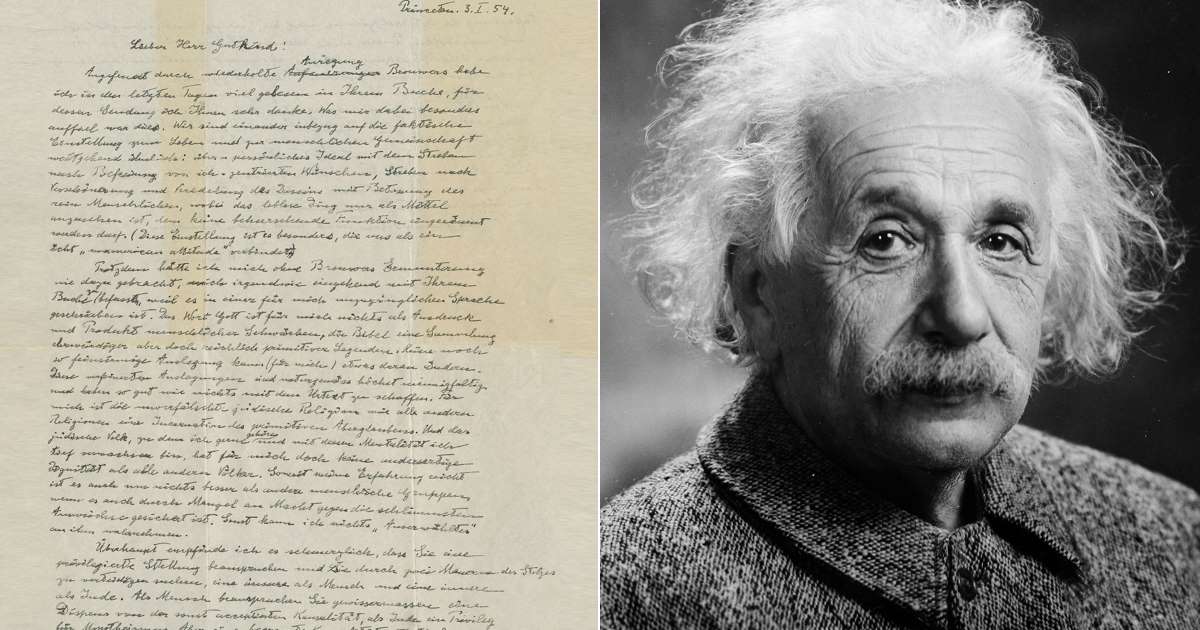 Princeton. 3. I. 54.
Lieber Herr Gutkind!
Anregung
Angefeuert durch wiederholte Brouwers habe
ich in den letzten Tagen viel gelesen in Ihrem Buche, für
dessen Sendung ich Ihnen sehr danke. Was mir dabei besonders
auffiel war dies. Wir sind einander inbezug auf die faktische
Einstellung zum Leben und zur menschlichen Gemeinschaft
weitgehend ähnlich: über-persönliches Ideal mit dem Streben
nach Befreiung von ich-zentrierten Wünschen, Streben nach
Verschönerung und Veredelung des Daseins mit Betonung des
rein Menschlichen, wobei das leblose Ding nur als Mittel
anzusehen ist, dem keine beherrschende Funktion eingeräumt
werden darf. (Diese Einstellung ist es besonders, die uns als ein
echt „unamerican attitude" verbindet)
Trotzdem hätte ich mich ohne Brouwers Ermunterung
nie dazu gebracht, mich irgendwie eingehend mit Ihrem
Buche zu befassen, weil es in einer für mich unzugänglichen Sprache
geschrieben ist. Das Wort Gott ist für mich nichts als Ausdruck
und Produkt menschlicher Schwächen, die Bibel eine Sammlung
ehrwürdiger aber doch reichlich primitiver Legenden. Keine noch
so feinsinnige Auslegung kann (für mich) etwas daran ändern.
Diese verfeinerten Auslegungen sind naturgemäss höchst mannigfaltig
und haben so gut wie nichts mit dem Urtext zu schaffen. Für
mich ist die unverfälschte jüdische Religion wie alle anderen
Religionen eine Incarnation des primitiven Aberglaubens. Und das
gehöre
jüdische Volk, zu dem ich gerne und mit dessen Mentalität ich
tief verwachsen bin, hat für mich doch keine andersartige
Dignität als alle anderen Völker. Soweit meine Erfahrung reicht
ist es auch um nichts besser als andere menschliche Gruppen
wenn es auch durch Mangel an Macht gegen die schlimmsten
Auswüchse gesichert ist. Sonst kann ich nichts „Auserwähltes"
an ihm wahrnehmen.
Überhaupt empfinde ich es schmerzlich, dass Sie eine
privilegierte Stellung beanspruchen und sie durch zwei Mauern des Stolzes
zu verteidigen suchen, eine äussere als Mensch und eine innere
als Jude. Als Mensch beanspruchen Sie gewissermassen einen
Dispens von der sonst acceptierten Kausalität, als Jude ein Privileg
für Monotheismus.